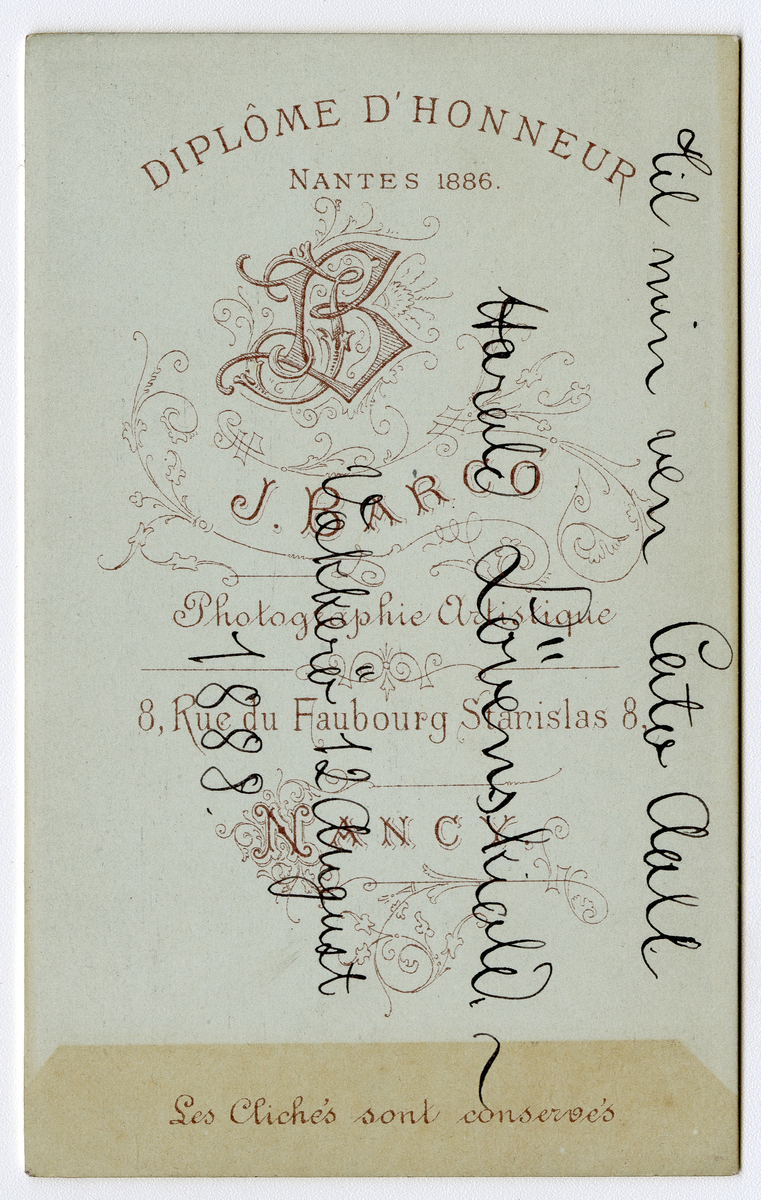 DIPLÔME D'HONNEUR
NANTES 1886.
J. BARCO
Photographie Artistique
8, Rue du Faubourg Stanislas 8.
NANCY
Les Clichés sont conservés
til min ven Cato Aall
Harald Lövenskiold
12 August
1888.